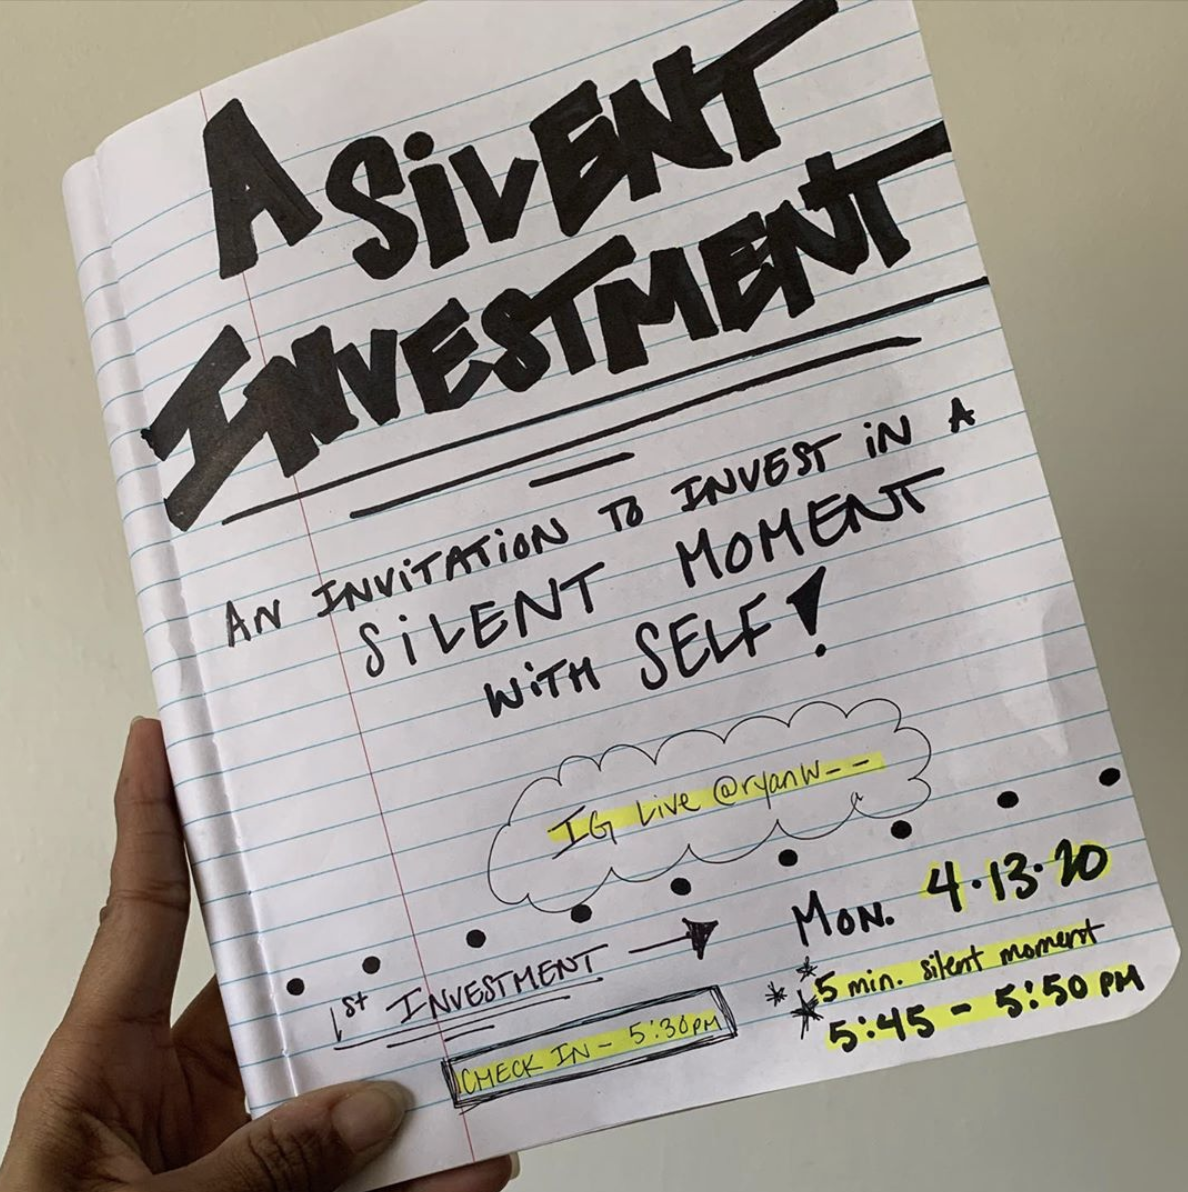 A SiLENT
INVESTMENT
AN INViTATiON TO INVEST iN A
SiLENT MOMENT
WiTH SELF!
IG Live @ryanw--
1st INVESTMENT
CHECK IN - 5:30PM
MON. 4.13.20
5 min. silent moment
5:45 - 5:50 PM